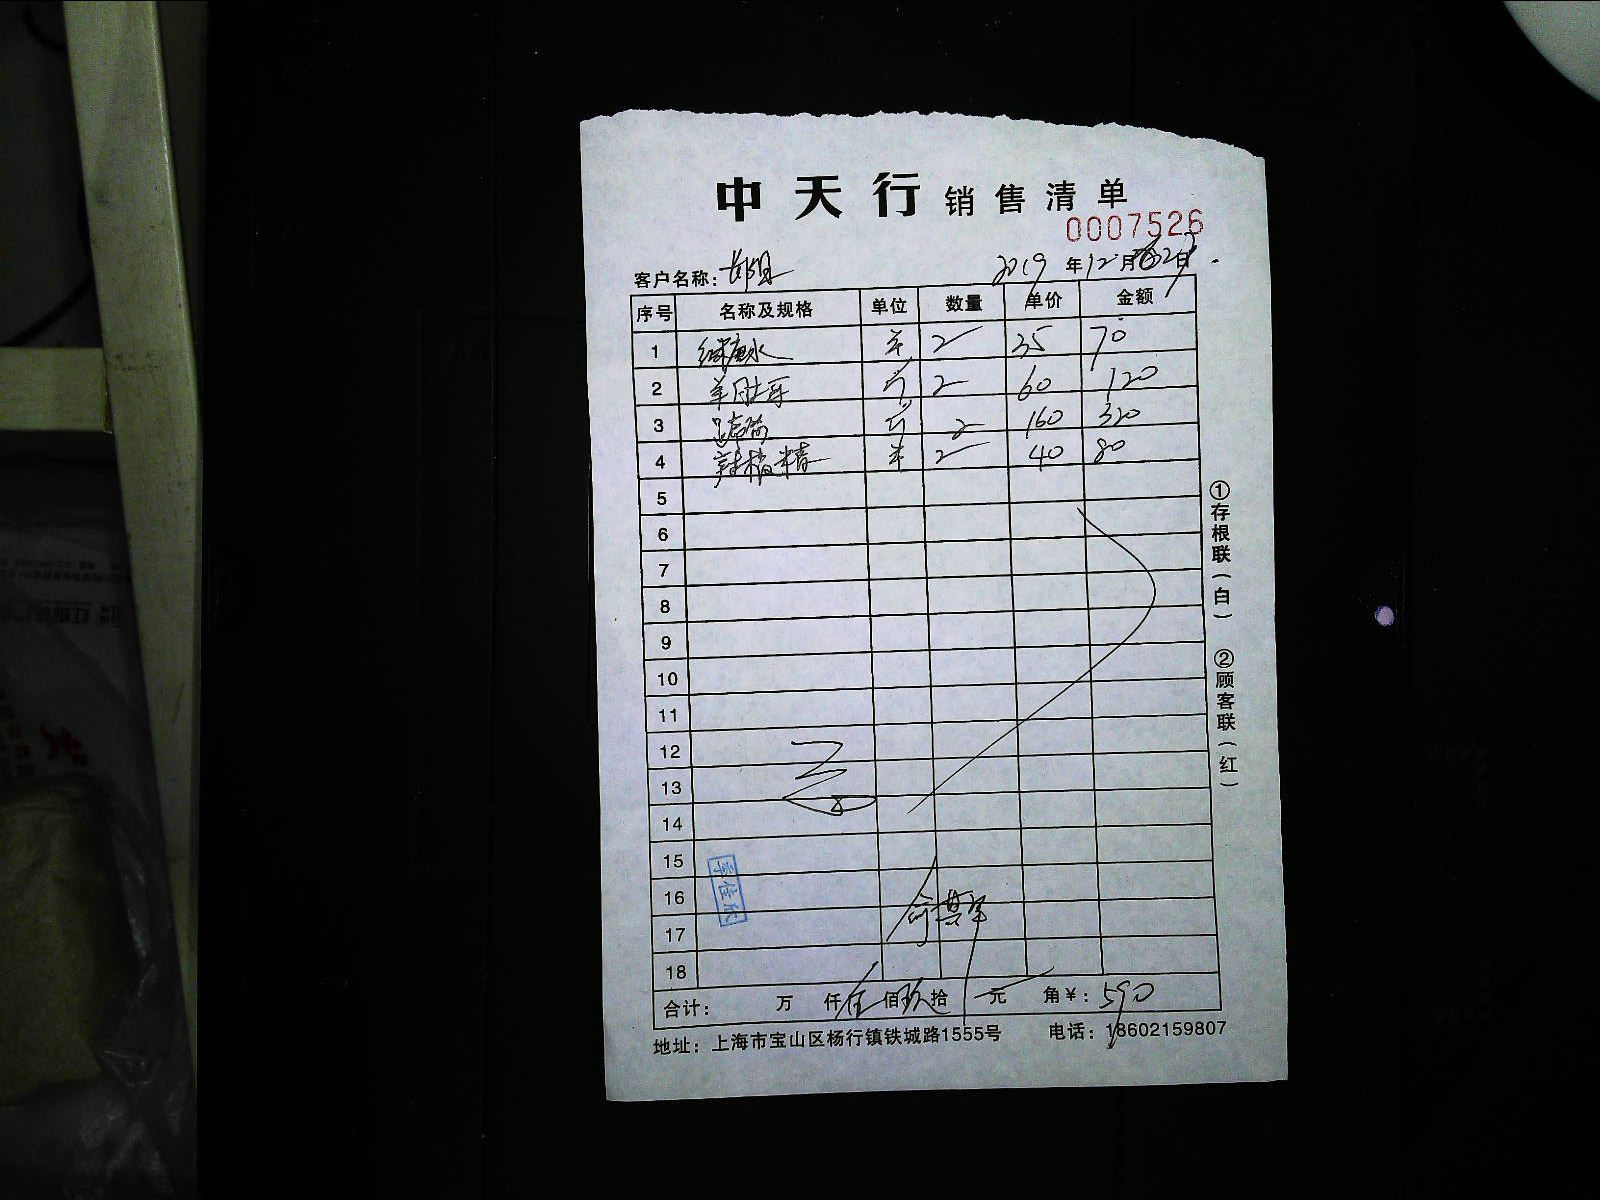 中天行 销售清单
0007526
客户名称： 2019 年 12 月 日
序号 名称及规格 单位 数量 单价 金额
1 2 35 70
2 羊肚 2 60 120
3 2 160 320
4 精 2 40 80
5
6
7
8
9
10
11
12
13
14
15
16
17
18
合计： 万 仟 伍 佰 玖 拾 元 角 ¥： 590
地址：上海市宝山区杨行镇铁城路1555号 电话：18602159807
①存根联（白） ②顾客联（红）